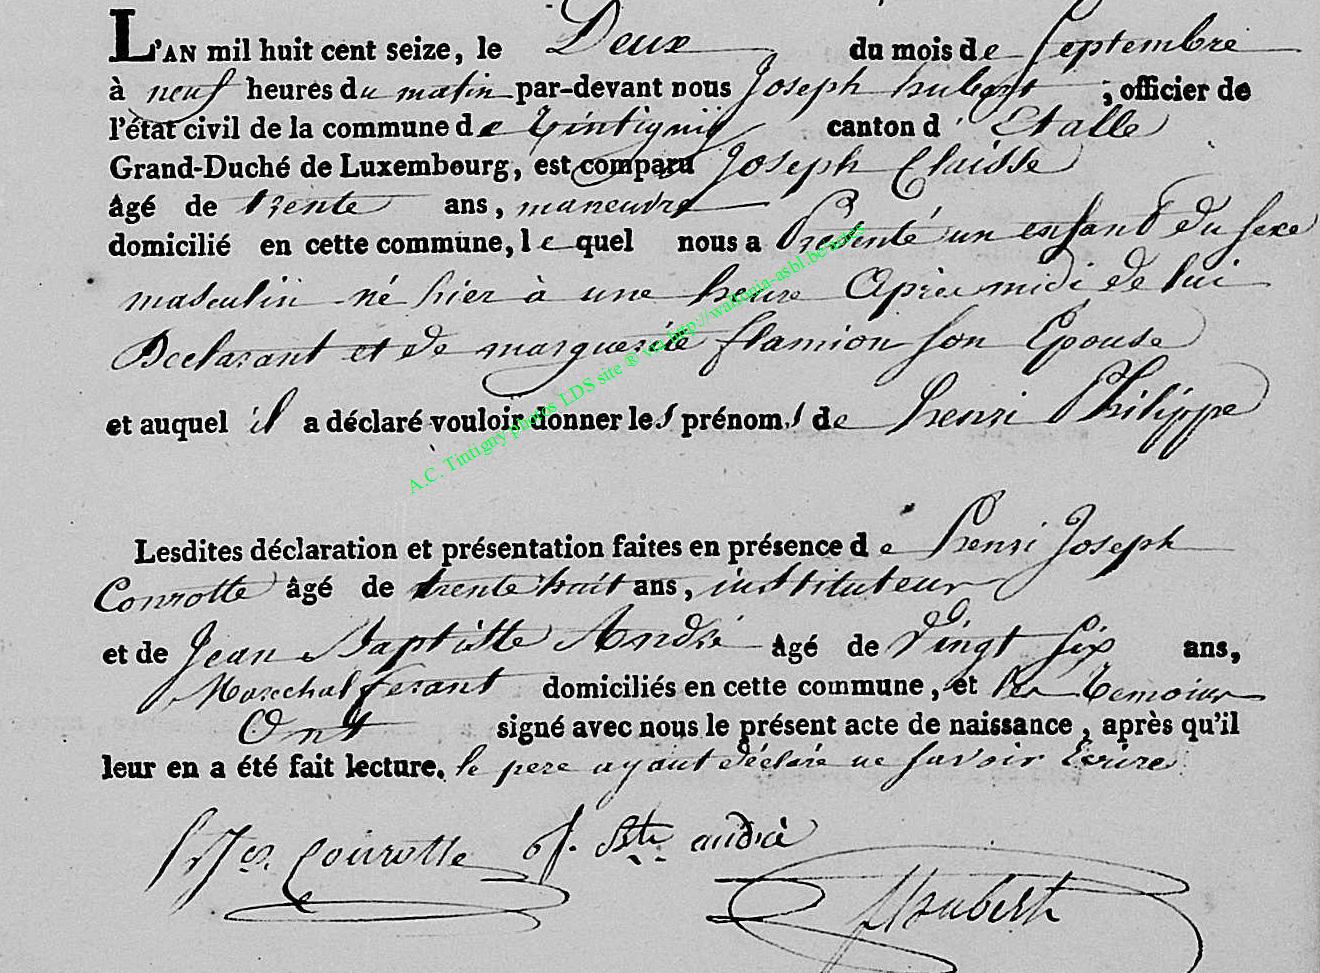 L'AN mil huit cent seize, le Deux du mois de Septembre
à neuf heures du matin par-devant nous Joseph hubert ; officier de
l'état civil de la commune de Tintigny canton d' Etalle
Grand-Duché de Luxembourg, est comparu Joseph Claisse
âgé de trente ans, maneuvre
domicilié en cette commune, le quel nous a Presenté un enfant du sexe
masculin né hier à une heure Après midi de lui
Declarant et de marguerite flamion son Epouse
et auquel il a déclaré vouloir donner les prénoms de henri Philippe
Lesdites déclaration et présentation faites en présence de henri Joseph
Conrotte âgé de trente huit ans, instituteur
et de Jean Baptiste André âgé de Vingt Six ans,
Marechal ferant domiciliés en cette commune, et les Temoins
Ont signé avec nous le présent acte de naissance, après qu'il
leur en a été fait lecture. le pere ayant déclaré ne savoir Ecrire
Conrotte J. Bte andré
Hubert
A.C. Tintigny photos LDS site ® via http://wallonia-asbl.be/sites